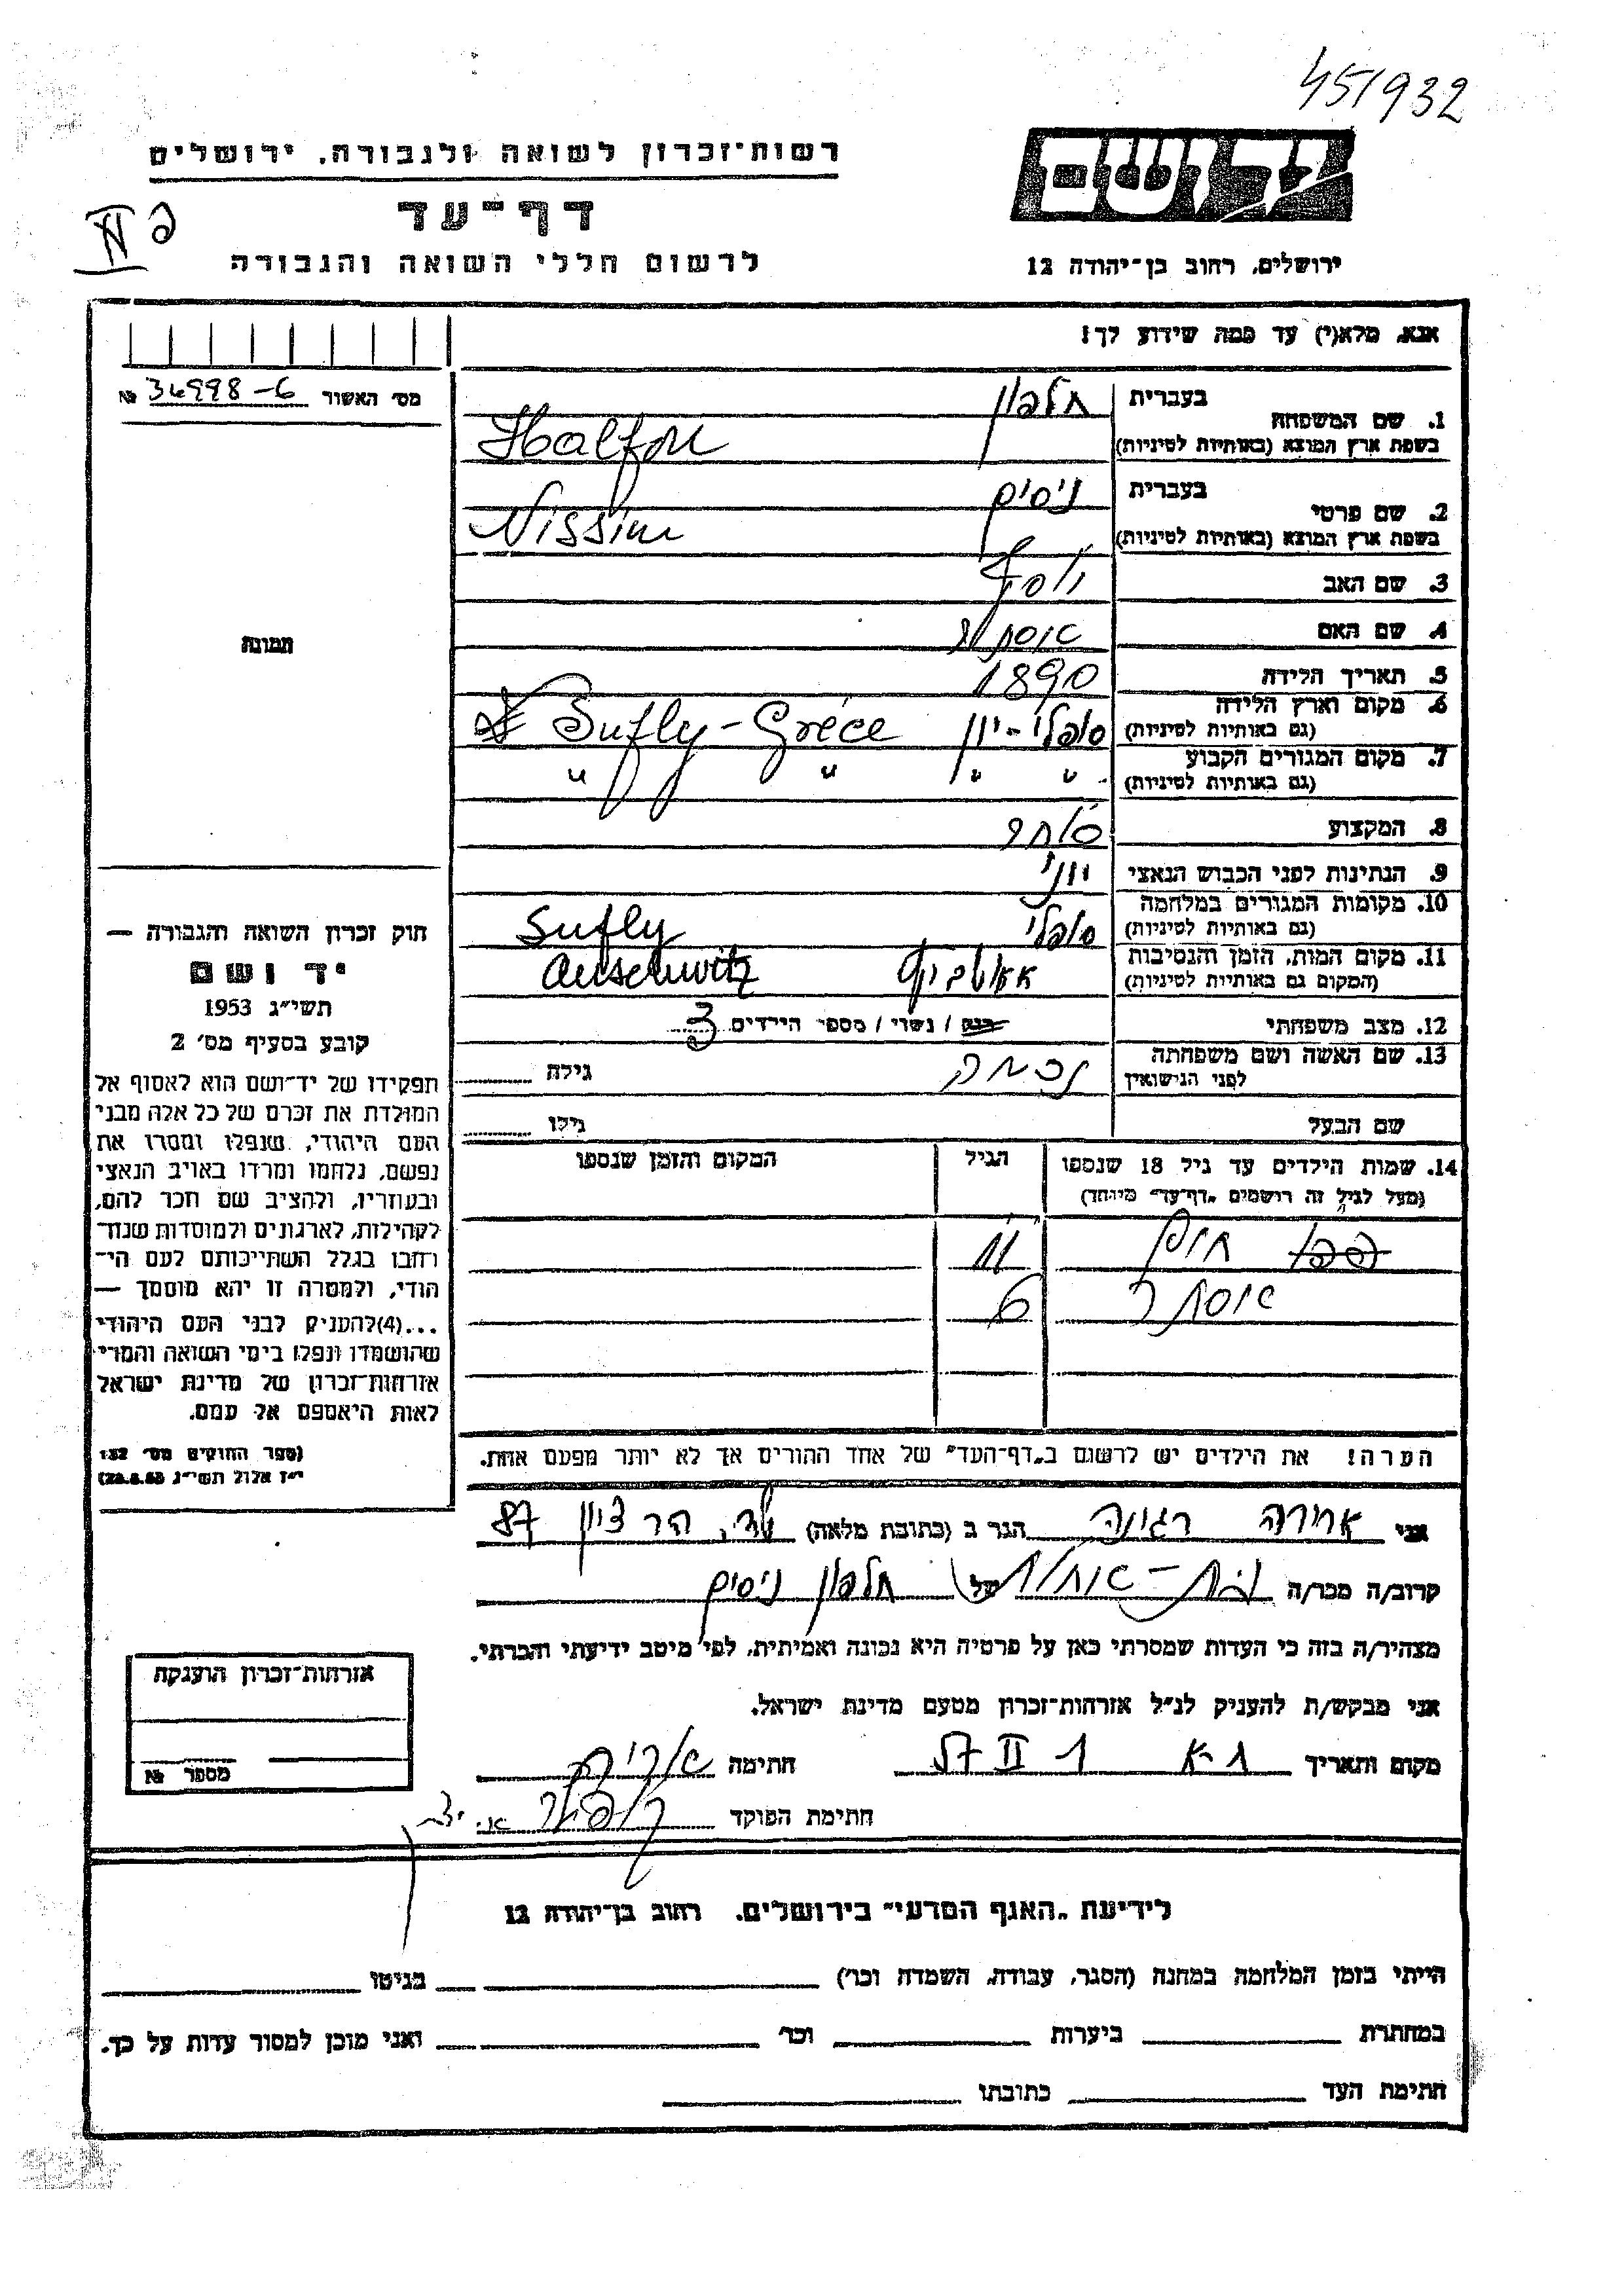 45/932
יד ושם
ירושלים, רחוב בן-יהודה 12
רשות-זכרון לשואה ולגבורה, ירושלים
דף-עד
לרשום חללי השואה והגבורה
אנא, מלא(י) עד כמה שידוע לך!
מס׳ האשור 36998-6 №
1. שם המשפחה בעברית חלפון
בשפת ארץ המוצא (באותיות לטיניות) Halfon
2. שם פרטי בעברית ניסים
בשפת ארץ המוצא (באותיות לטיניות) Nissim
3. שם האב יוסף
4. שם האם אסתר
5. תאריך הלידה 1890
6. מקום וארץ הלידה סופלי - יון Sufly - Grèce
(גם באותיות לטיניות)
7. מקום המגורים הקבוע " " " "
(גם באותיות לטיניות)
8. המקצוע סוחר
9. הנתינות לפני הכבוש הנאצי יווני
10. מקומות המגורים במלחמה סופלי Sufly
(גם באותיות לטיניות)
11. מקום המות, הזמן והנסיבות Auschwitz
(המקום גם באותיות לטיניות)
12. מצב משפחתי רווק / נשוי / מספר הילדים 3
13. שם האשה ושם משפחתה נחמה גילה
לפני הנישואין
שם הבעל גילו
14. שמות הילדים עד גיל 18 שנספו הגיל המקום והזמן שנספו
(מעל לגיל זה רושמים „דף-עד״ מיוחד)
11
אסתר 6
הערה! את הילדים יש לרשום ב„דף-העד״ של אחד ההורים אך לא יותר מפעם אחת.
תמונה
חוק זכרון השואה והגבורה —
יד ושם
תשי״ג 1953
קובע בסעיף מס׳ 2
תפקידו של יד-ושם הוא לאסוף אל
המולדת את זכרם של כל אלה מבני
העם היהודי, שנפלו ומסרו את
נפשם, נלחמו ומרדו באויב הנאצי
ובעוזריו, ולהציב שם וזכר להם,
לקהילות, לארגונים ולמוסדות שנח-
רבו בגלל השתייכותם לעם הי-
הודי, ולמטרה זו יהא מוסמך —
...(4)להעניק לבני העם היהודי
שהושמדו ונפלו בימי השואה והמרי
אזרחות-זכרון של מדינת ישראל
לאות היאספם אל עמם.
(ספר החוקים מס׳ 132
י״ז אלול תשי״ג 28.8.53)
אני רגינה הגר ב (כתובת מלאה) הר ציון 87
קרוב/ה מכר/ה בת-אחות של חלפון ניסים
מצהיר/ה בזה כי העדות שמסרתי כאן על פרטיה היא נכונה ואמיתית, לפי מיטב ידיעתי והכרתי.
אני מבקש/ת להעניק לנ״ל אזרחות-זכרון מטעם מדינת ישראל.
מקום ותאריך ת-א 1 II 57 חתימה
חתימת הפוקד
אזרחות-זכרון הוענקה
מספר №
לידיעת „האגף המדעי״ בירושלים, רחוב בן-יהודה 12
הייתי בזמן המלחמה במחנה (הסגר, עבודה, השמדה וכו׳) בגיטו
במחתרת ביערות וכו׳ ואני מוכן למסור עדות על כך.
חתימת העד כתובתו